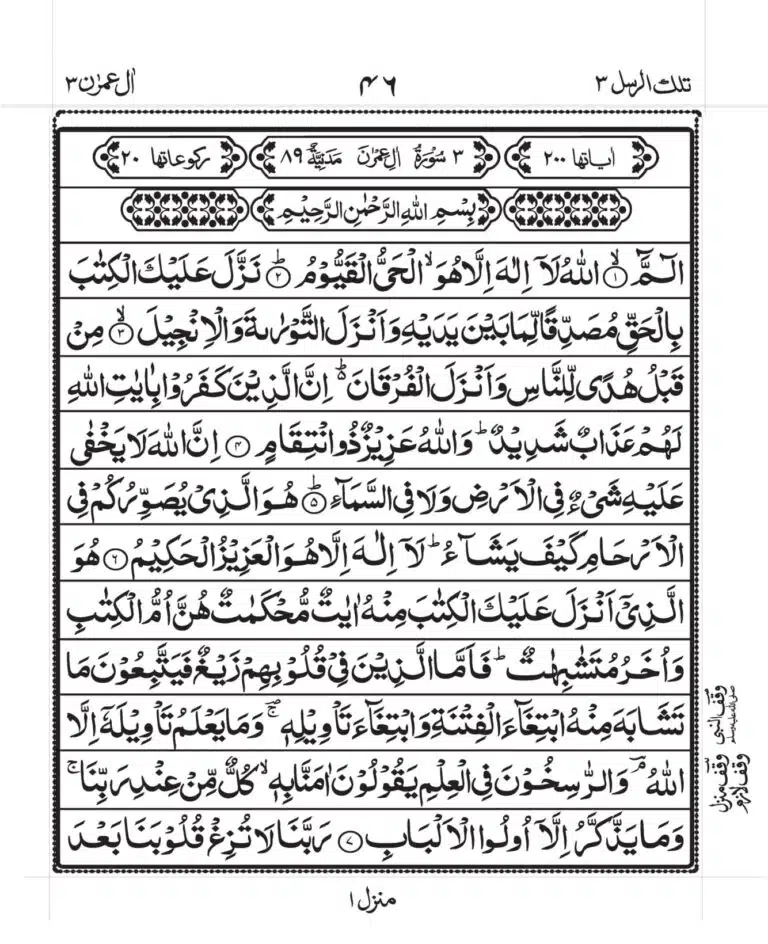 تلك الرسل ٣
٤٦
اٰل عمرٰن ٣
اٰیاتها ٢٠٠
٣ سُوۡرَةُ اٰلِ عِمۡرٰنَ مَدَنِيَّةٌ ٨٩
رکوعاتها ٢٠
بِسۡمِ اللهِ الرَّحۡمٰنِ الرَّحِيۡمِ
الٓـمّٓ ۙ‏﴿۱﴾ اللهُ لَاۤ اِلٰهَ اِلَّا هُوَ ۙ الۡحَىُّ الۡقَيُّوۡمُ ؕ‏﴿۲﴾ نَزَّلَ عَلَيۡكَ الۡكِتٰبَ
بِالۡحَقِّ مُصَدِّقًا لِّمَا بَيۡنَ يَدَيۡهِ وَاَنۡزَلَ التَّوۡرٰٮةَ وَالۡاِنۡجِيۡلَ ۙ‏﴿۳﴾ مِنۡ
قَبۡلُ هُدًى لِّلنَّاسِ وَاَنۡزَلَ الۡفُرۡقَانَ ؕ۵ اِنَّ الَّذِيۡنَ كَفَرُوۡا بِاٰيٰتِ اللهِ
لَهُمۡ عَذَابٌ شَدِيۡدٌ ؕ وَاللهُ عَزِيۡزٌ ذُو انۡتِقَامٍ ‏﴿۴﴾ اِنَّ اللهَ لَا يَخۡفٰى
عَلَيۡهِ شَىۡءٌ فِى الۡاَرۡضِ وَلَا فِى السَّمَآءِ ؕ‏﴿۵﴾ هُوَ الَّذِىۡ يُصَوِّرُكُمۡ فِى
الۡاَرۡحَامِ كَيۡفَ يَشَآءُ ؕ لَاۤ اِلٰهَ اِلَّا هُوَ الۡعَزِيۡزُ الۡحَكِيۡمُ ‏﴿۶﴾ هُوَ
الَّذِىۡۤ اَنۡزَلَ عَلَيۡكَ الۡكِتٰبَ مِنۡهُ اٰيٰتٌ مُّحۡكَمٰتٌ هُنَّ اُمُّ الۡكِتٰبِ
وَاُخَرُ مُتَشٰبِهٰتٌ ؕ فَاَمَّا الَّذِيۡنَ فِىۡ قُلُوۡبِهِمۡ زَيۡغٌ فَيَتَّبِعُوۡنَ مَا
تَشَابَهَ مِنۡهُ ابۡتِغَآءَ الۡفِتۡنَةِ وَابۡتِغَآءَ تَاۡوِيۡلِهٖ ۚ وَمَا يَعۡلَمُ تَاۡوِيۡلَهٗۤ اِلَّا
اللهُ ۘؔ وَالرّٰسِخُوۡنَ فِى الۡعِلۡمِ يَقُوۡلُوۡنَ اٰمَنَّا بِهٖ ۙ كُلٌّ مِّنۡ عِنۡدِ رَبِّنَا ۚ
وَمَا يَذَّكَّرُ اِلَّاۤ اُولُوا الۡاَلۡبَابِ ‏﴿۷﴾ رَبَّنَا لَا تُزِغۡ قُلُوۡبَنَا بَعۡدَ
وقف النبی صلی الله علیه وسلم
وقف منزل
وقف لازم
منزل ١